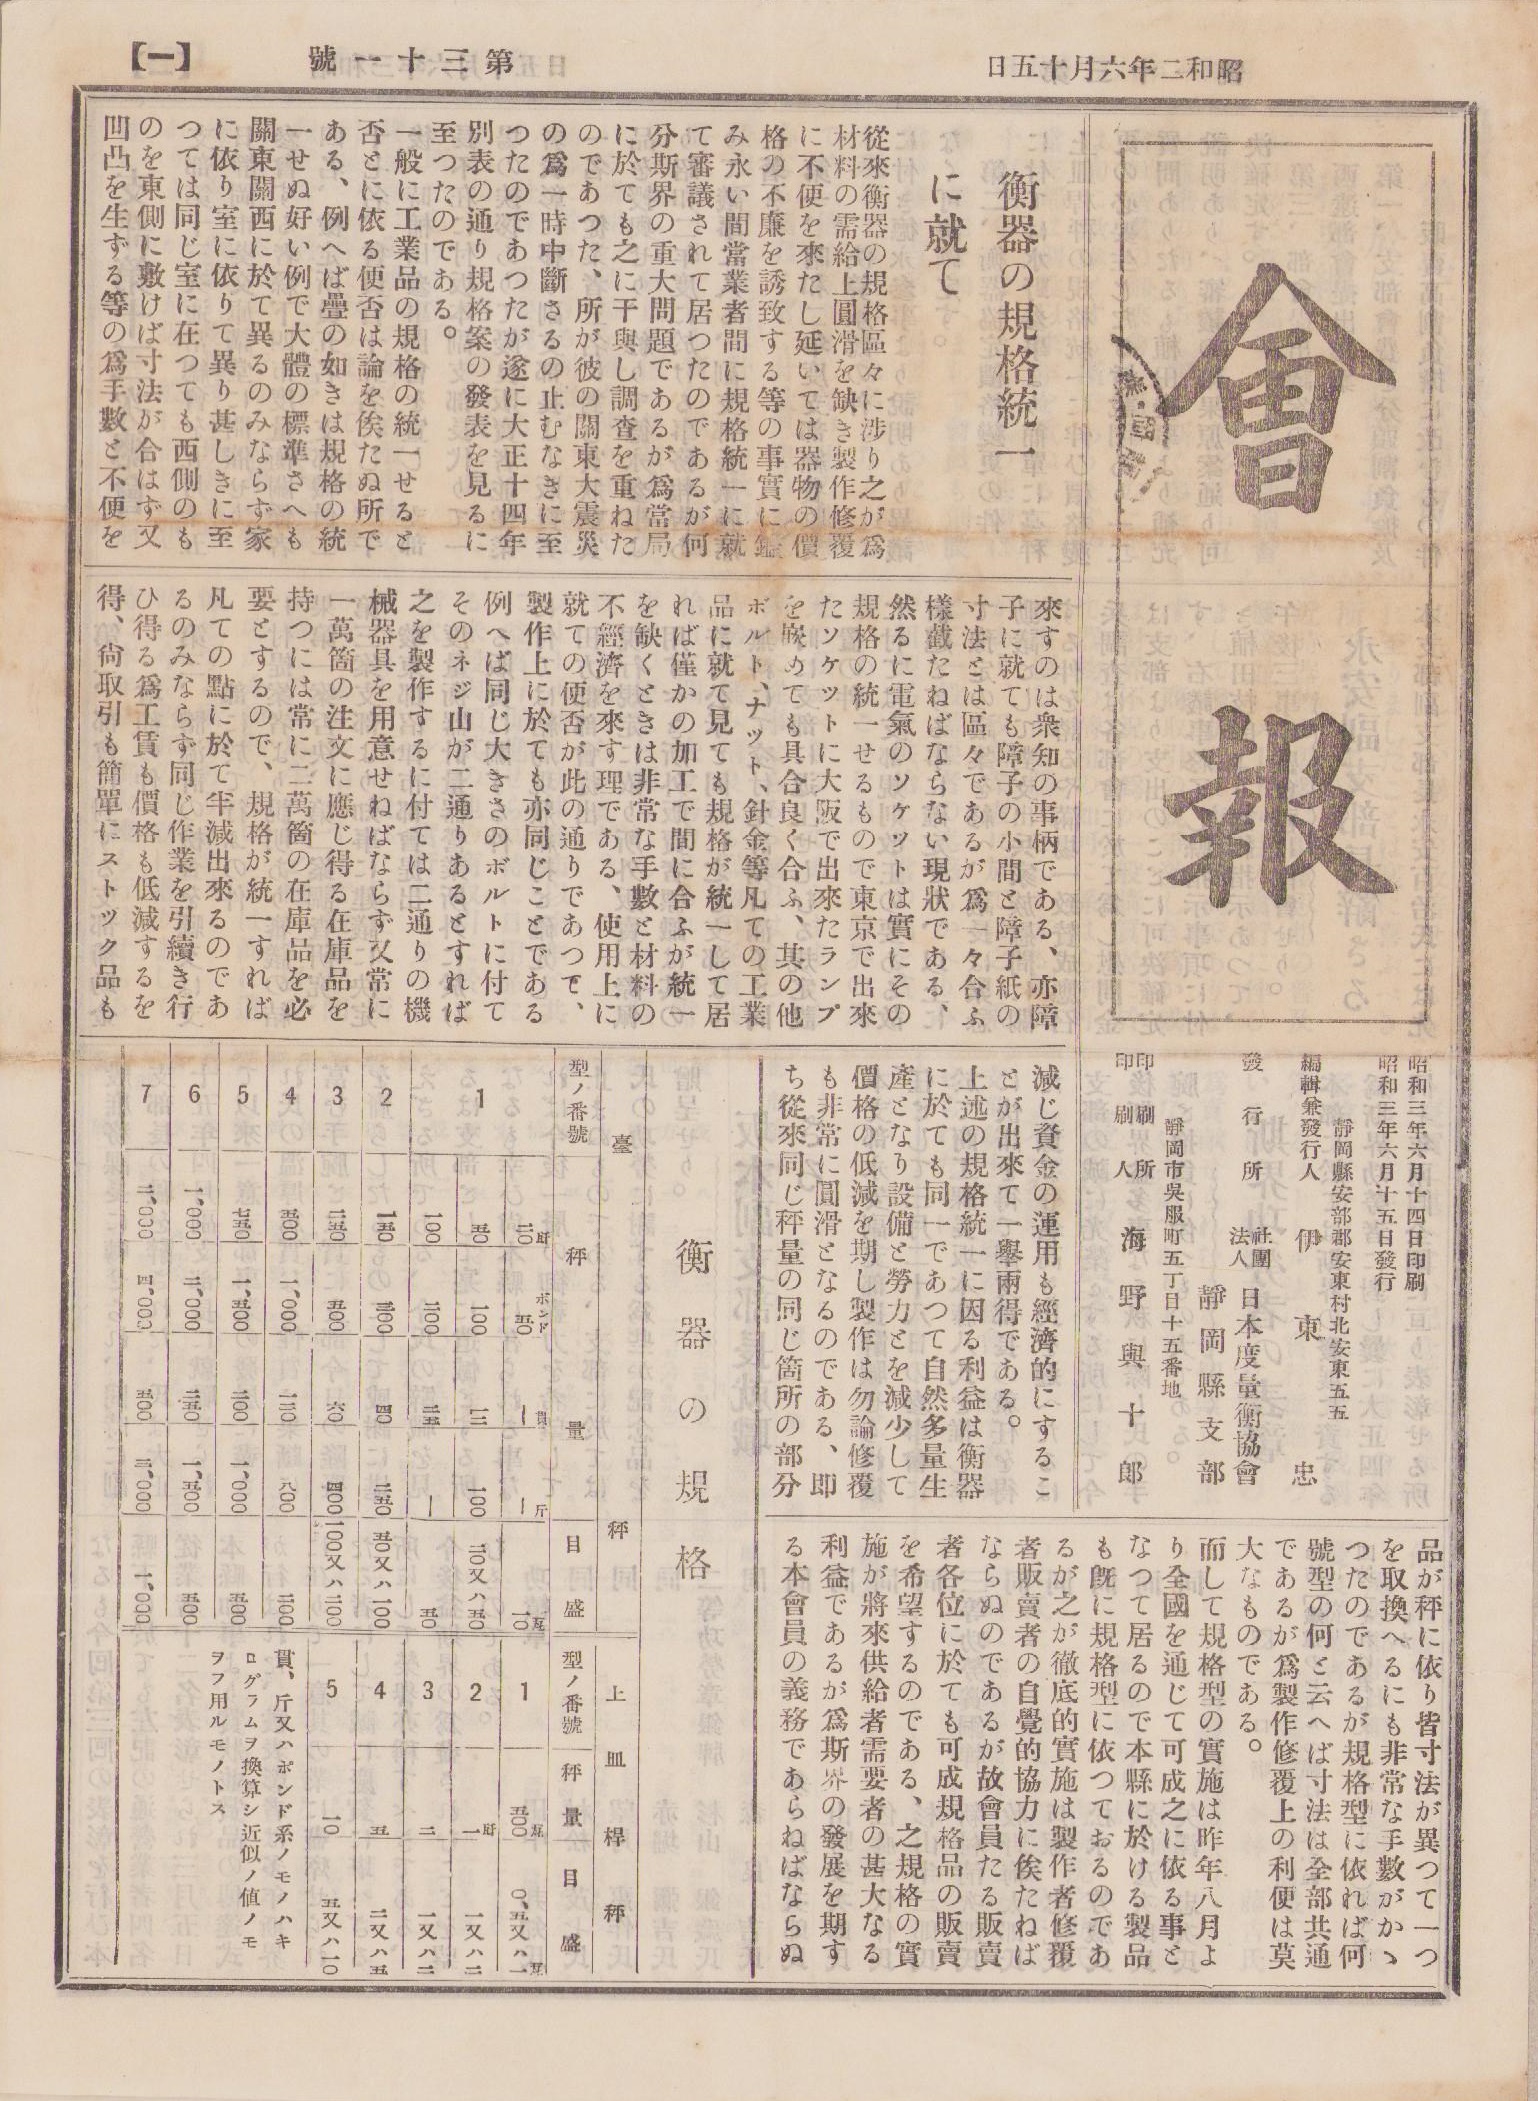 昭和二年六月十五日
第三十一號
【一】
會報
昭和三年六月十四日印刷
昭和三年六月十五日發行
靜岡縣安部郡安東村北安東五五
編輯兼發行人 伊東忠
發行所 社團法人 日本度量衡協會
靜岡縣支部
靜岡市吳服町五丁目十五番地
印刷所
印刷人 海野與十郎
衡器の規格統一
に就て
從來衡器の規格區々に涉り之が爲
材料の需給上圓滑を缺き製作修覆
に不便を來たし延いては器物の價
格の不廉を誘致する等の事實に鑑
み永い間當業者間に規格統一に就
て審議されて居つたのであるが何
分斯界の重大問題であるが爲當局
に於ても之に干與し調査を重ねた
のであつた、所が彼の關東大震災
の爲一時中斷さるの止むなきに至
つたのであつたが遂に大正十四年
別表の通り規格案の發表を見るに
至つたのである。
一般に工業品の規格の統一せると
否とに依る便否は論を俟たぬ所で
ある、例へば疊の如きは規格の統
一せぬ好い例で大體の標準さへも
關東關西に於て異るのみならず家
に依り室に依りて異り甚しきに至
つては同じ室に在つても西側のも
のを東側に敷けば寸法が合はず又
凹凸を生ずる等の爲手數と不便を
來すのは衆知の事柄である、亦障
子に就ても障子の小間と障子紙の
寸法とは區々であるが爲一々合ふ
樣截たねばならない現狀である、
然るに電氣のソケツトは實にその
規格の統一せるもので東京で出來
たソケットに大阪で出來たランプ
を嵌めても具合良く合ふ、其の他
ボルト、ナット、針金等凡ての工業
品に就て見ても規格が統一して居
れば僅かの加工で間に合ふが統一
を缺くときは非常な手數と材料の
不經濟を來す理である、使用上に
就ての便否が此の通りであつて、
製作上に於ても亦同じことである
例へば同じ大きさのボルトに付て
そのネジ山が二通りあるとすれば
之を製作するに付ては二通りの機
械器具を用意せねばならず又常に
一萬箇の注文に應じ得る在庫品を
持つには常に二萬箇の在庫品を必
要とするので、規格が統一すれば
凡ての點に於て半減出來るのであ
るのみならず同じ作業を引續き行
ひ得る爲工賃も價格も低減するを
得、尙取引も簡單にストック品も
減じ資金の運用も經濟的にするこ
とが出來て一舉兩得である。
上述の規格統一に因る利益は衡器
に於ても同一であつて自然多量生
產となり設備と勞力とを減少して
價格の低減を期し製作は勿論修覆
も非常に圓滑となるのである、即
ち從來同じ秤量の同じ箇所の部分
品が秤に依り皆寸法が異つて一つ
を取換へるにも非常な手數がかゝ
つたのであるが規格型に依れば何
號型の何と云へば寸法は全部共通
であるが爲製作修覆上の利便は莫
大なものである。
而して規格型の實施は昨年八月よ
り全國を通じて可成之に依る事と
なつて居るので本縣に於ける製品
も既に規格型に依つておるのであ
るが之が徹底的實施は製作者修覆
者販賣者の自覺的協力に俟たねば
ならぬのであるが故會員たる販賣
者各位に於ても可成規格品の販賣
を希望するのである、之規格の實
施が將來供給者需要者の甚大なる
利益であるが爲斯界の發展を期す
る本會員の義務であらねばならぬ
衡器の規格
臺秤
型ノ番號 秤量 目盛
1 二〇瓩 五〇ポンド 一貫 一斤 一〇瓦
五〇 一〇〇 一二 一〇〇 二〇又ハ五〇
一〇〇 二〇〇 二五 一 五〇
2 一五〇 三〇〇 四〇 二五〇 五〇又ハ一〇〇
3 二五〇 五〇〇 六〇 四〇〇 一〇〇又ハ二〇〇
4 五〇〇 一、〇〇〇 一二〇 八〇〇 二〇〇
5 七五〇 一、五〇〇 二〇〇 一、〇〇〇 五〇〇
6 一、〇〇〇 二、〇〇〇 二五〇 一、五〇〇 五〇〇
7 二、〇〇〇 四、〇〇〇 五〇〇 三、〇〇〇 一、〇〇〇
上皿桿秤
型ノ番號 秤量 目盛
1 五〇〇瓦 〇、五又ハ一瓦
2 一瓩 一又ハ二
3 二 一又ハ二
4 五 二又ハ五
5 一〇 五又ハ一〇
貫、斤又ハポンド系ノモノハキ
ログラムヲ換算シ近似ノ値ノモ
ヲフ用ルモノトス